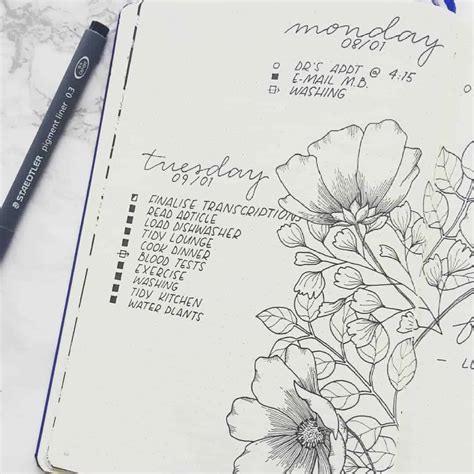 monday
08/01
DR'S APPT @ 4:15
E-MAIL M.B.
WASHING
tuesday
09/01
FINALISE TRANSCRIPTIONS
READ ARTICLE
LOAD DISHWASHER
TIDY LOUNGE
COOK DINNER
BLOOD TESTS
EXERCISE
WASHING
TIDY KITCHEN
WATER PLANTS
STAEDTLER pigment liner 0.3